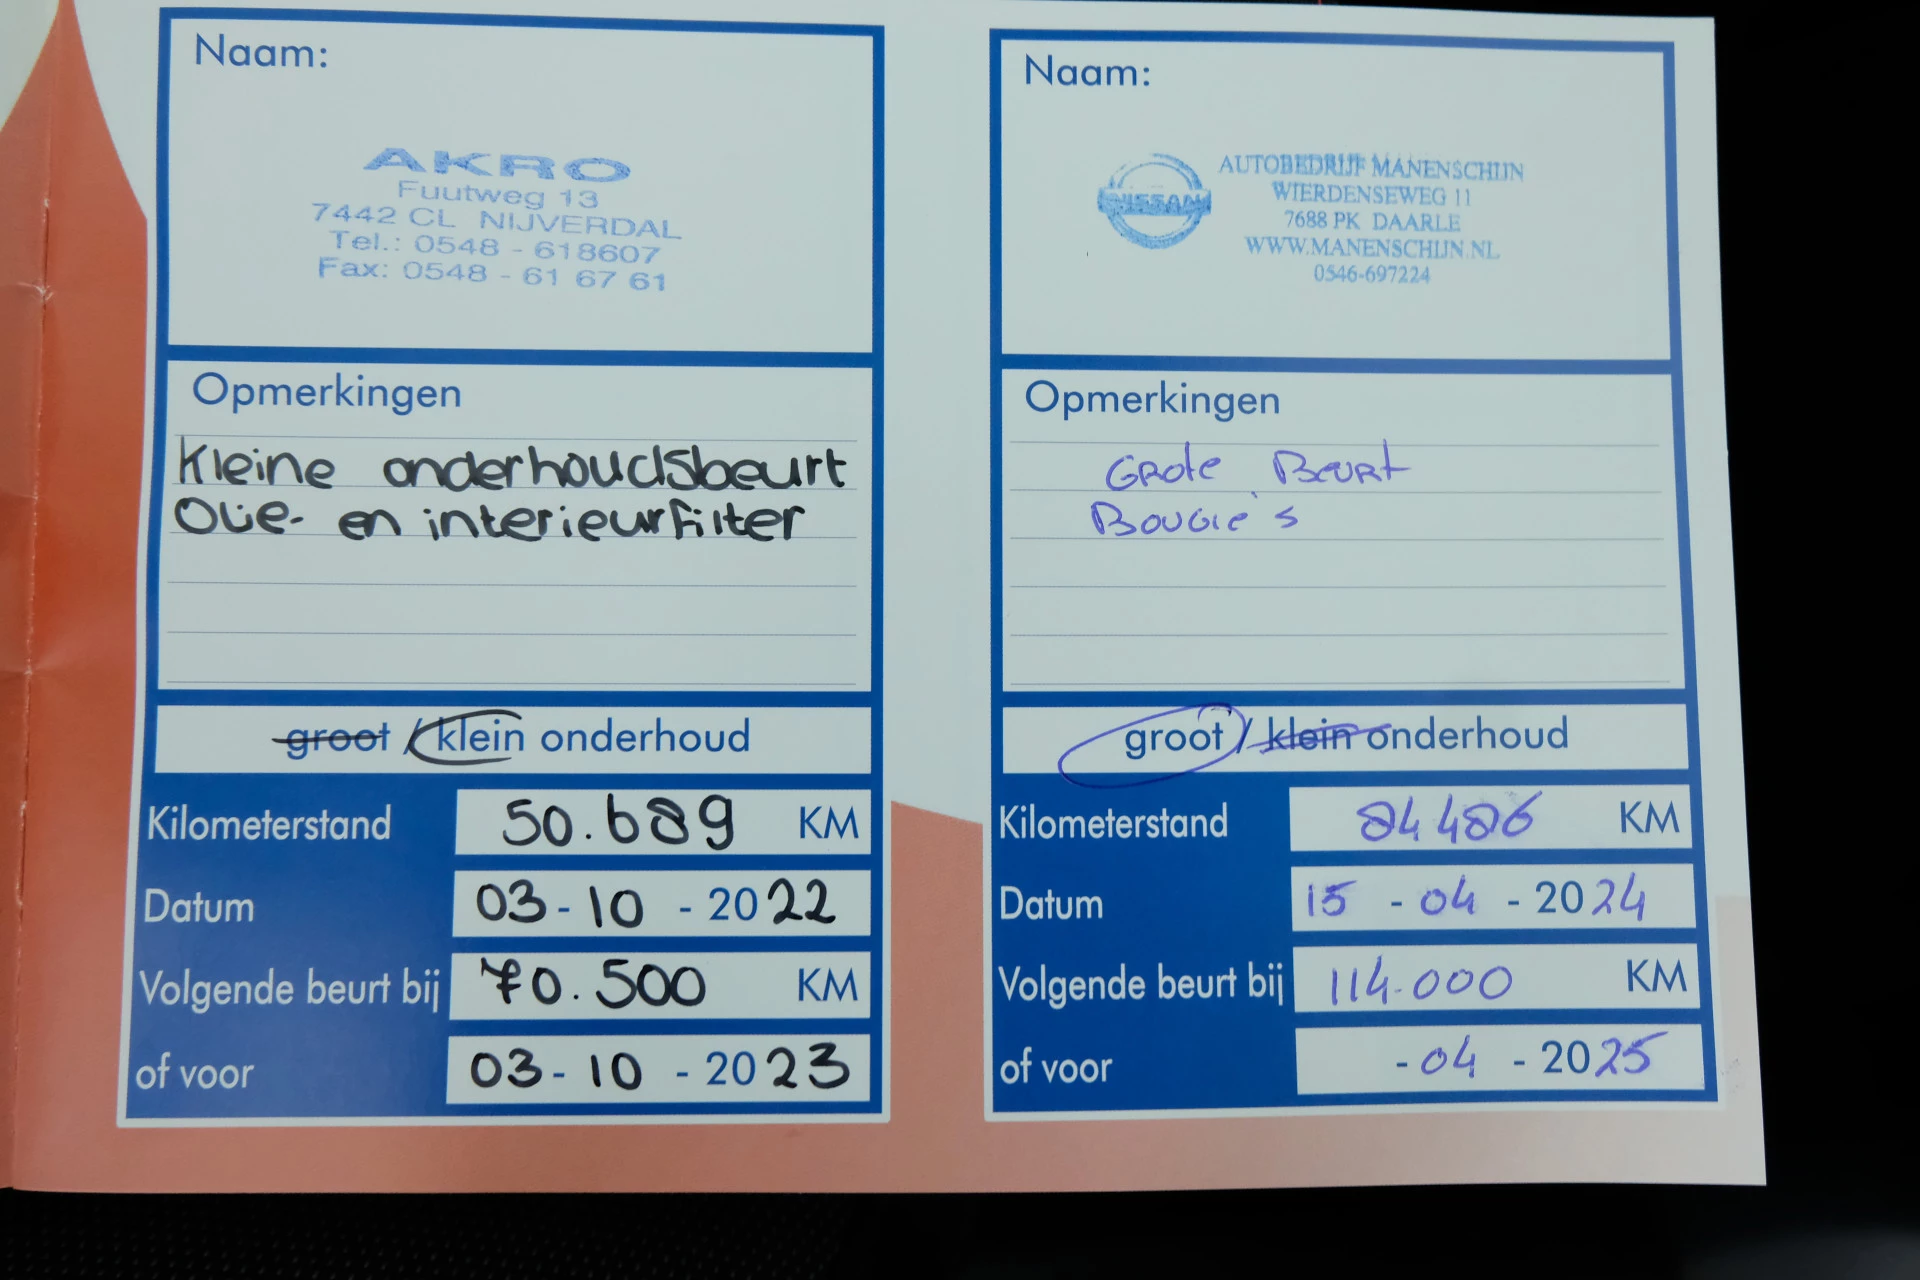 Naam:
AKRO
Fuutweg 13
7442 CL NIJVERDAL
Tel.: 0548 - 618607
Fax: 0548 - 61 67 61
Opmerkingen
Kleine onderhoudsbeurt
Olie- en interieurfilter
groot / klein onderhoud
Kilometerstand 50.689 KM
Datum 03 - 10 - 2022
Volgende beurt bij 70.500 KM
of voor 03 - 10 - 2023
Naam:
NISSAN
AUTOBEDRIJF MANENSCHIJN
WIERDENSEWEG 11
7688 PK DAARLE
WWW.MANENSCHIJN.NL
0546-697224
Opmerkingen
Grote Beurt
Bougie's
groot / klein onderhoud
Kilometerstand 84486 KM
Datum 15 - 04 - 2024
Volgende beurt bij 114.000 KM
of voor - 04 - 2025